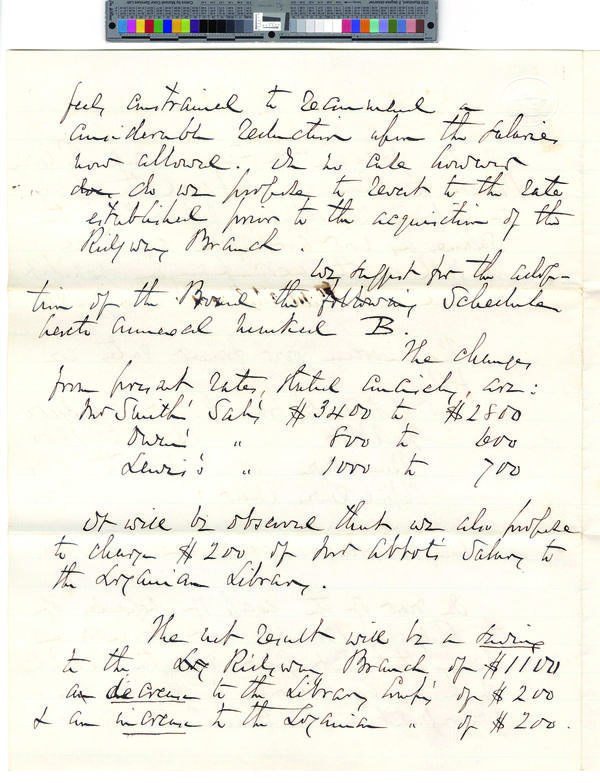 feels constrained to recommend a
considerable reduction upon the salaries
now allowed. In no case however
do we propose to revert to the rates
established prior to the acquisition of the
Ridgway Branch.
We suggest for the adop-
tion of the Board the following Schedule
hereto annexed marked B.
The changes
from present rates, stated concisely, are:
Mr Smith's Sal'y $3400 to $2800
Owen's " 800 to 600
Lewis's " 1000 to 700
It will be observed that we also propose
to charge $200 of Mr Abbot's Salary to
the Loganian Library.
The net result will be a saving
to the Log Ridgway Branch of $1100
a decrease to the Library Comp'y of $200
& an increase to the Loganian " of $200.